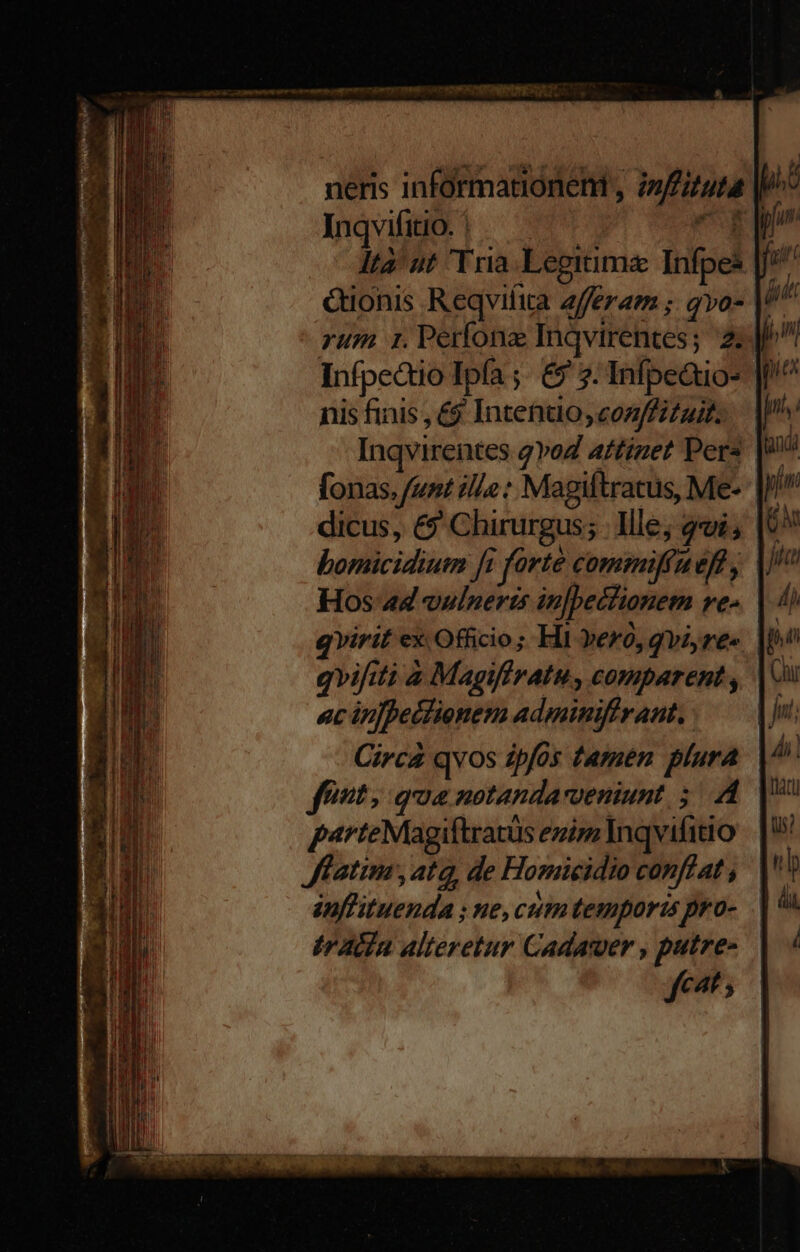 neris informationem, inſtituta
Inqviſitio.
Ità ut Tria Legitimæ Inſpe-
ctionis Reqviſita afferam ; qvo-
rum 1. Perſonæ Inqvirentes; 2.
Inſpectio Ipſa ; & 3. Inſpectio-
nis finis, & Intentio, conſtituit.
Inqvirentes qvod attinet Per-
ſonas, ſunt illæ: Magiſtratus, Me-
dicus, & Chirurgus; Ille, qvi,
homicidium ſi fortè commiſſu eſt,
Hos ad vulneris inſpectionem re-
qvirit ex Officio ; Hi verò, qvi, re-
qviſiti à Magiſtratu, comparent,
ac inſpectionem adminiſtrant.
Circà qvos ipſos tamen plura
ſunt, qvæ notanda veniunt ; A
parte Magiſtratûs enim Inqviſitio
ſtatim, atq, de Homicidio conſtat,
inſtituenda ; ne, cùm temporis pro-
tractu alteretur Cadaver, putre-
ſcat,